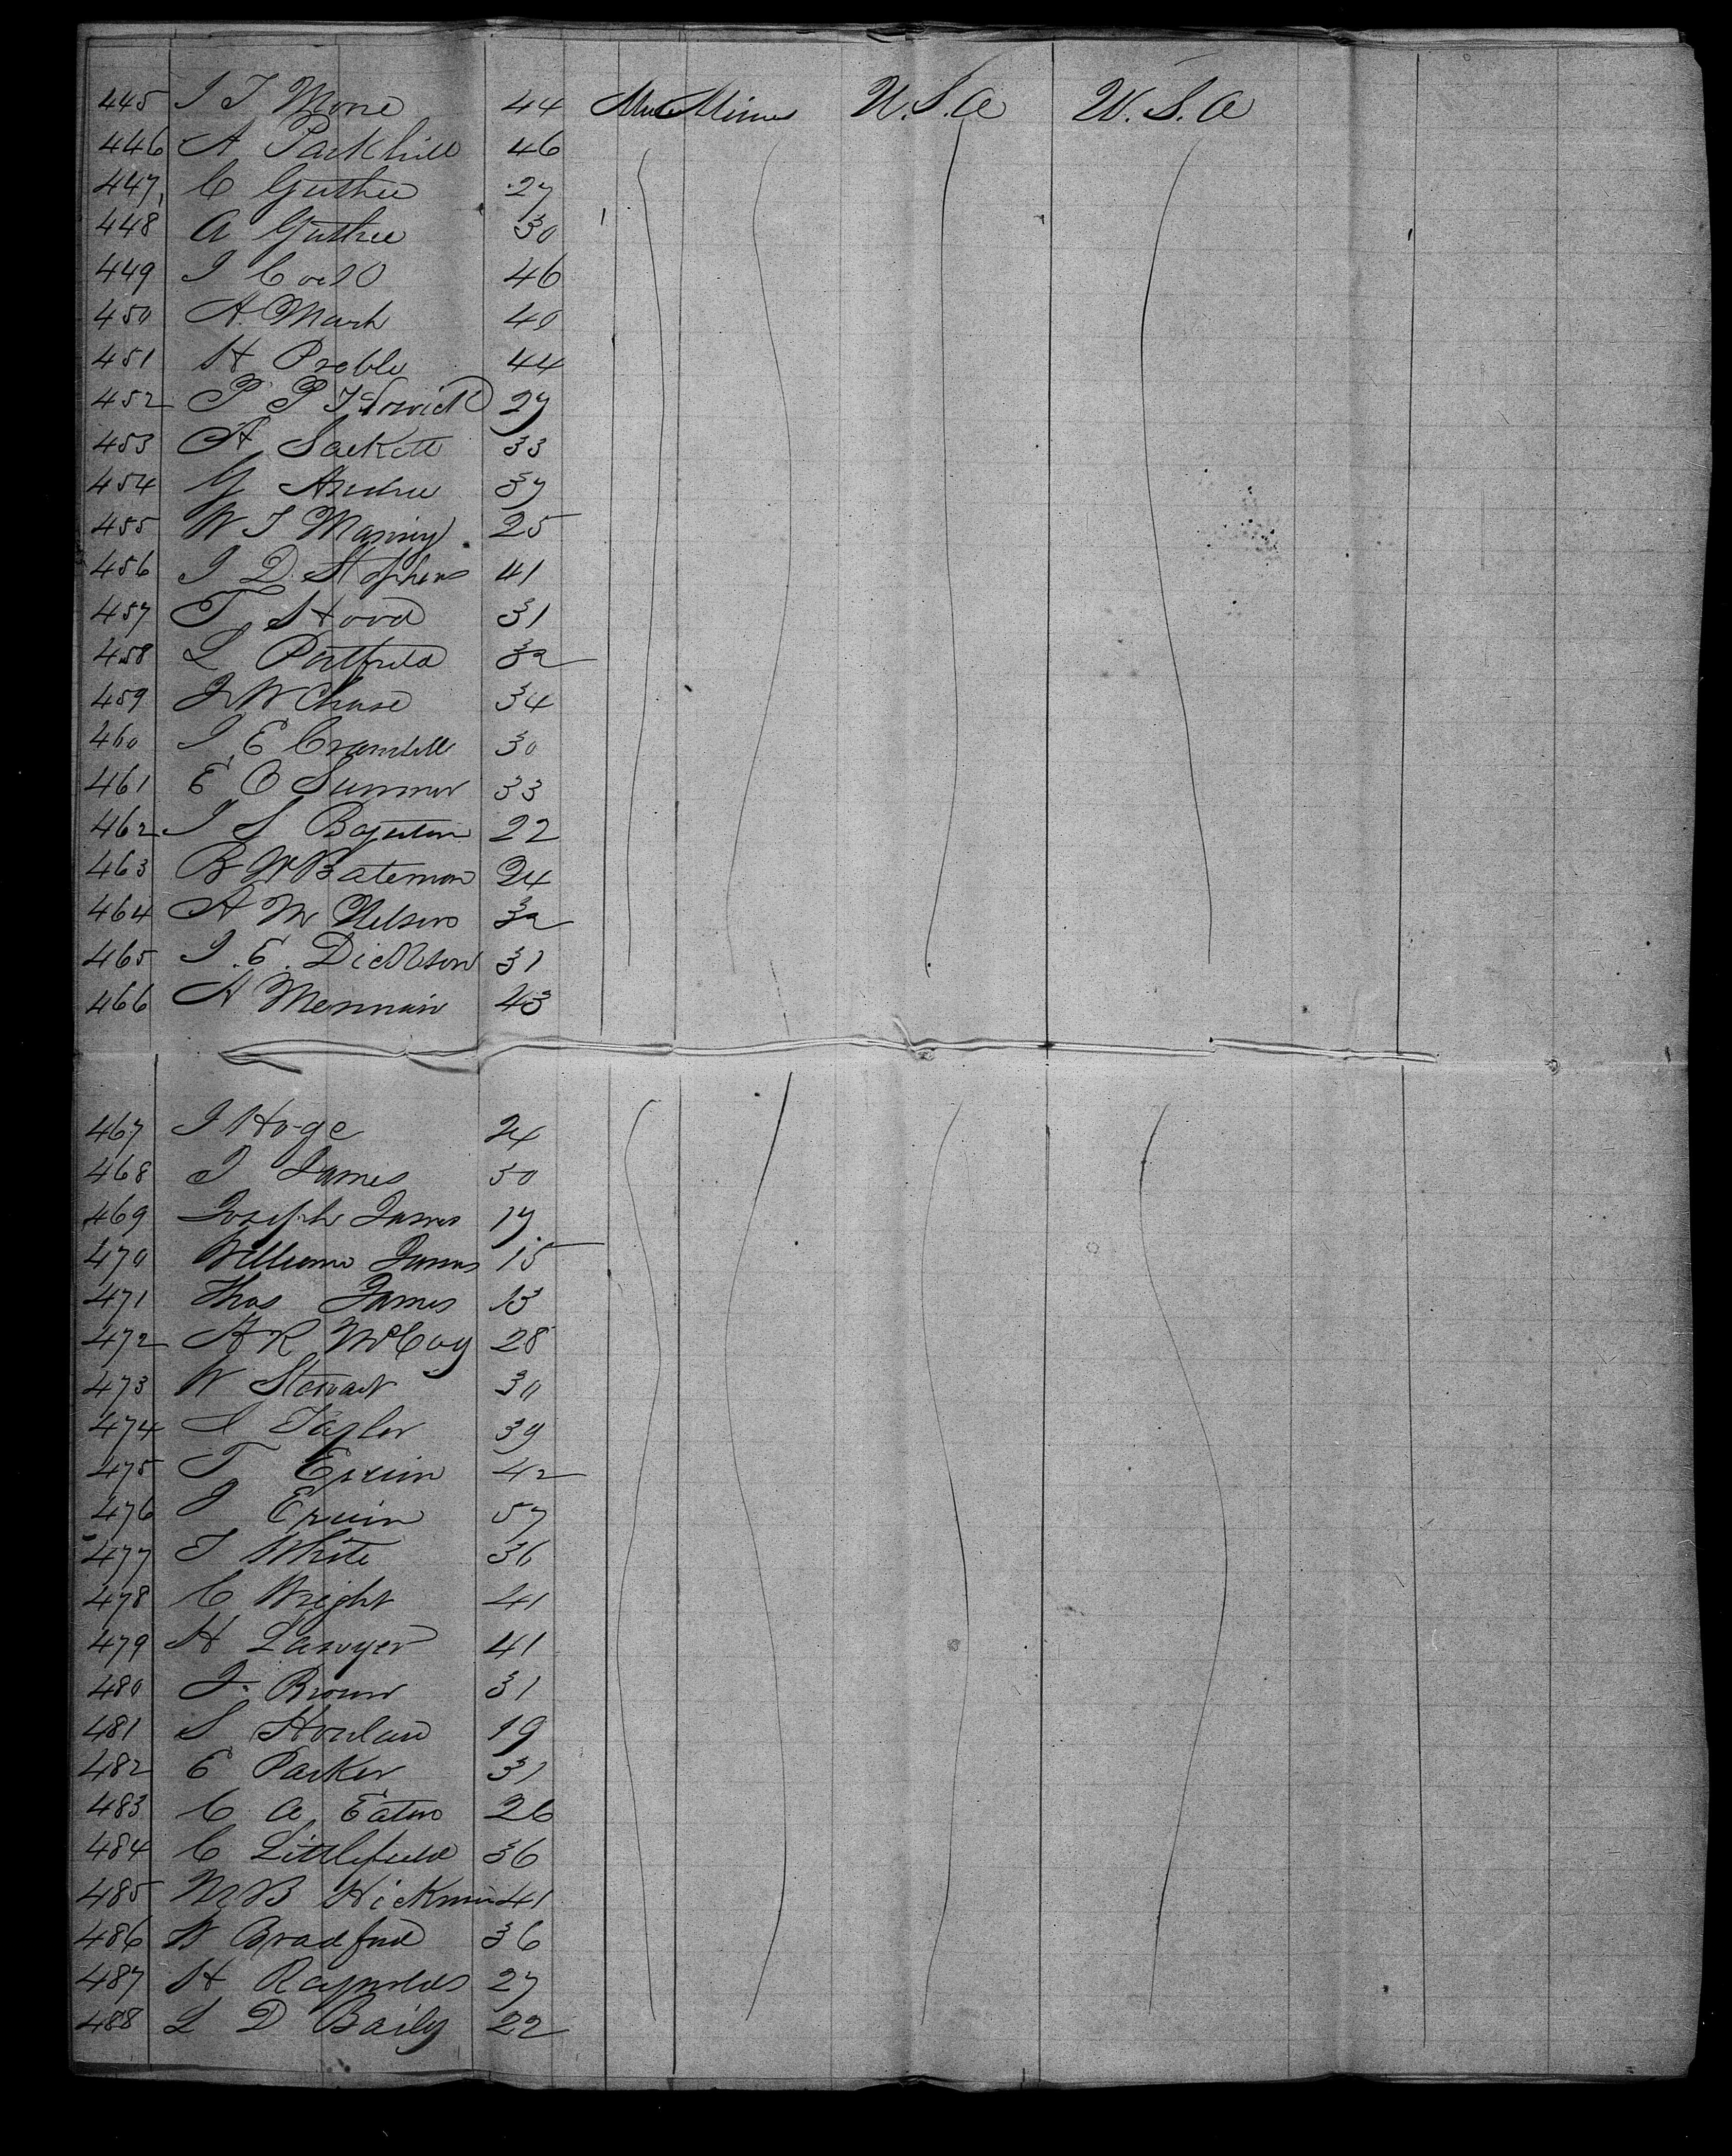 445 J T More 44 Male Miner U.S.A U.S.A
446 A Parkhill 46
447 C Guthrie 27
448 A Guthrie 30
449 J 46
450 A. Marsh 40
451 H Preble 44
452 P P 27
453 A Sackett 33
454 G Andrew 37
455 W T Manny 25
456 J D. Stephens 41
457 T Hood 31
458 L 32
459 J W Chase 34
460 J E 30
461 E C Sumner 33
462 J S Boynton 22
463 B W Bateman 24
464 A M Nelson 32
465 J. E. Dickson 31
466 A 43
467 J Hoge 24
468 J James 50
469 Joseph James 17
470 William James 15
471 Thos James 13
472 A R McCoy 28
473 W Stewart 30
474 S Taylor 39
475 T Erwin 42
476 J Erwin 57
477 T White 36
478 C Wright 41
479 H Lawyer 41
480 J. Brown 31
481 S 19
482 E Parker 31
483 C A Eaton 26
484 C Littlefield 36
485 B Hickman 41
486 W Bradford 36
487 H Raynolds 27
488 L D Baily 22